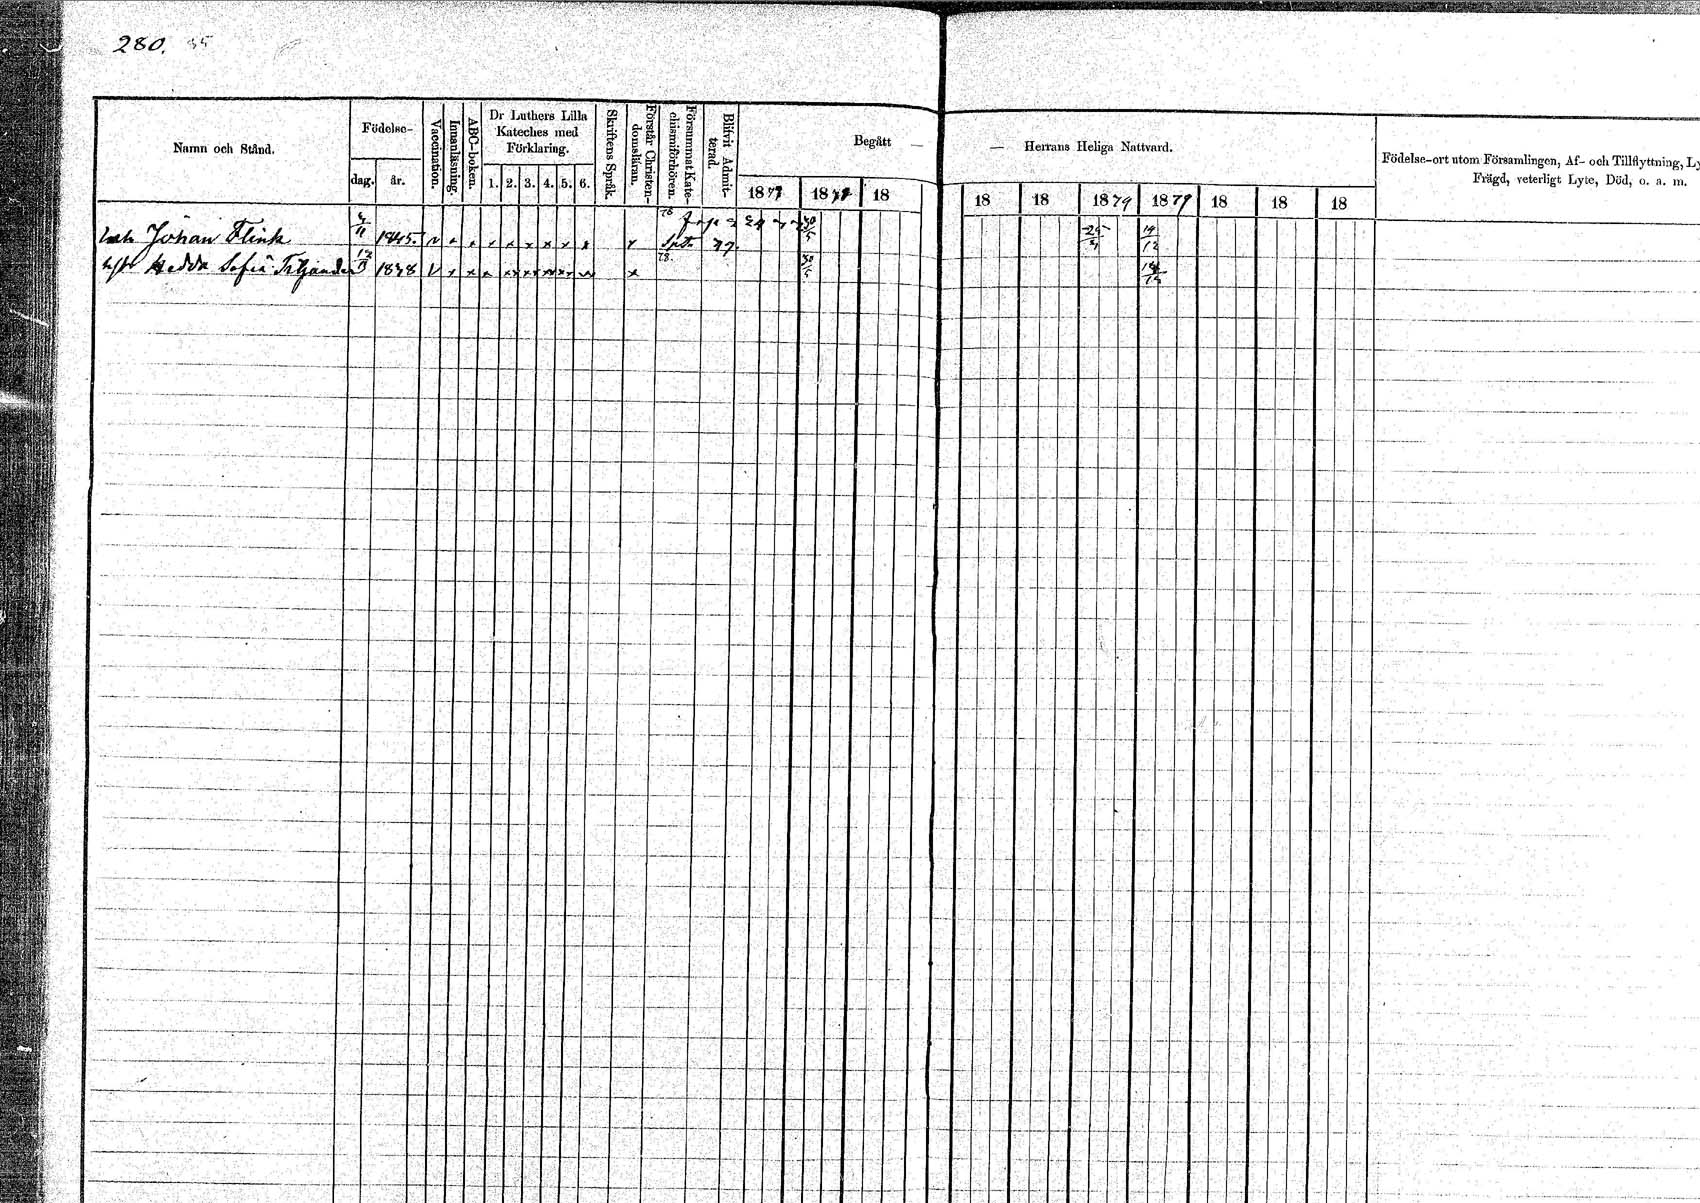 280. 35
Namn och Stånd.
Födelse-
dag. år.
Vaccination.
Innanläsning.
ABC-boken.
Dr Luthers Lilla
Kateches med
Förklaring.
1. 2. 3. 4. 5. 6.
Skriftens Språk.
Förstår Christen-
domsläran.
Försummat Kate-
chismiförhören.
Blifvit Admit-
terad.
Begått —
1877 1878 18
— Herrans Heliga Nattvard.
18 18 1879 1879 18 18 18
Födelse-ort utom Församlingen, Af- och Tillflyttning, Ly
Frägd, veterligt Lyte, Död, o. a. m.
Johan Flink 1845. v x x x x x x x x x 25 19/12
Hedda Sofia 1848 v x x x x 30/5